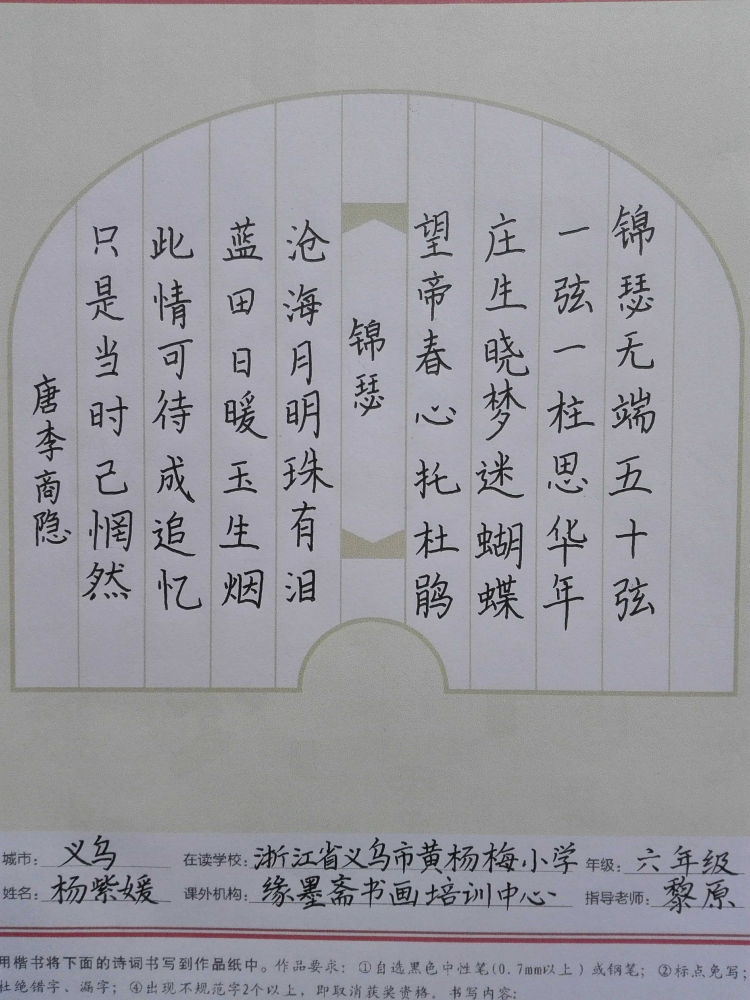 锦瑟无端五十弦
一弦一柱思华年
庄生晓梦迷蝴蝶
望帝春心托杜鹃
锦瑟
沧海月明珠有泪
蓝田日暖玉生烟
此情可待成追忆
只是当时己惘然
唐李商隐
城市：义乌 在读学校：浙江省义乌市黄杨梅小学 年级：六年级
姓名：杨紫媛 课外机构：缘墨斋书画培训中心 指导老师：黎原
用楷书将下面的诗词书写到作品纸中。作品要求：①自选黑色中性笔(0.7mm以上)或钢笔；②标点免写；
杜绝错字、漏字；④出现不规范字2个以上，即取消获奖资格。书写内容：